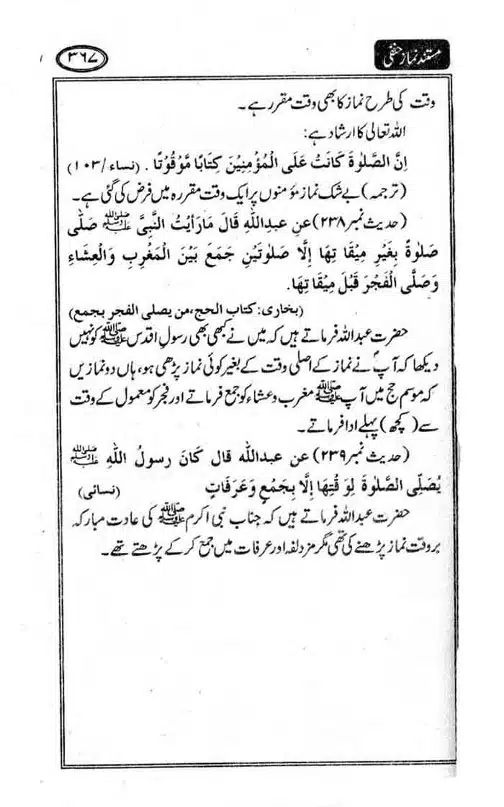 مستند نماز حنفی
۳۶۷
وقت کی طرح نماز کا بھی وقت مقرر ہے۔
اللہ تعالیٰ کا ارشاد ہے:
اِنَّ الصَّلٰوةَ كَانَتْ عَلَى الْمُؤْمِنِيْنَ كِتَابًا مَّوْقُوْتًا . (نساء/۱۰۳)
(ترجمہ) بے شک نماز مؤمنوں پر ایک وقت مقررہ میں فرض کی گئی ہے۔
(حدیث نمبر ۲۳۸) عن عبدالله قَالَ مَارَأَيْتُ النَّبِیَّ ﷺ صَلّٰى
صَلٰوةً بِغَيْرِ مِيْقَا تِهَا إلَّا صَلوٰتَيْنِ جَمَعَ بَيْنَ الْمَغْرِبِ وَالْعِشَاءِ
وَصَلَّى الْفَجْرَ قَبْلَ مِيْقَا تِهَا.
(بخاری: کتاب الحج،من یصلی الفجر بجمع)
حضرت عبداللہ فرماتے ہیں کہ میں نے کبھی بھی رسول اقدس ﷺ کو نہیں
دیکھا کہ آپ نے نماز کے اصلی وقت کے بغیر کوئی نماز پڑھی ہو، ہاں دو نمازیں
کہ موسم حج میں آپ ﷺ مغرب و عشاء کو جمع فرماتے اور فجر کو معمول کے وقت
سے (کچھ) پہلے ادا فرماتے۔
(حدیث نمبر ۲۳۹) عن عبدالله قال كَانَ رسولُ اللهِ ﷺ
يُصَلِّى الصَّلوٰةَ لِوَ قْتِهَا اِلَّا بِجَمْعٍ وَعَرَفَاتٍ (نسائی)
حضرت عبداللہ فرماتے ہیں کہ جناب نبی اکرم ﷺ کی عادت مبارکہ
بروقت نماز پڑھنے کی تھی مگر مزدلفہ اور عرفات میں جمع کر کے پڑھتے تھے۔